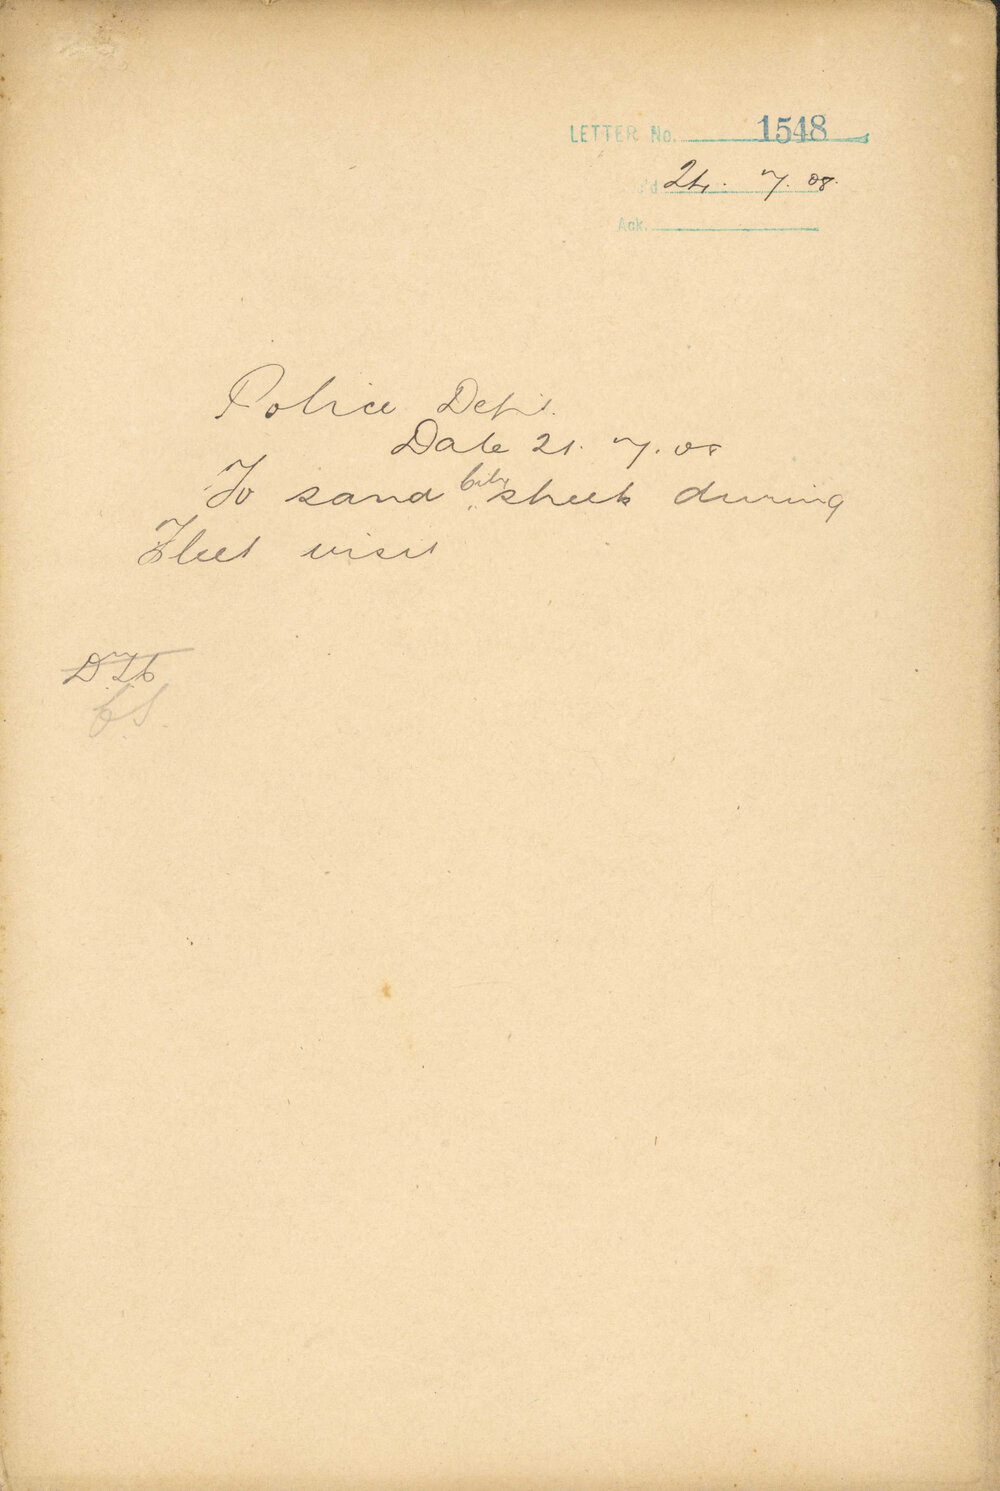 LETTER No. 1548
'd 24. 7. 08.
Ack.
Police Dept.
Date 21. 7. 08
To sand city streets during
Fleet visit
CS.